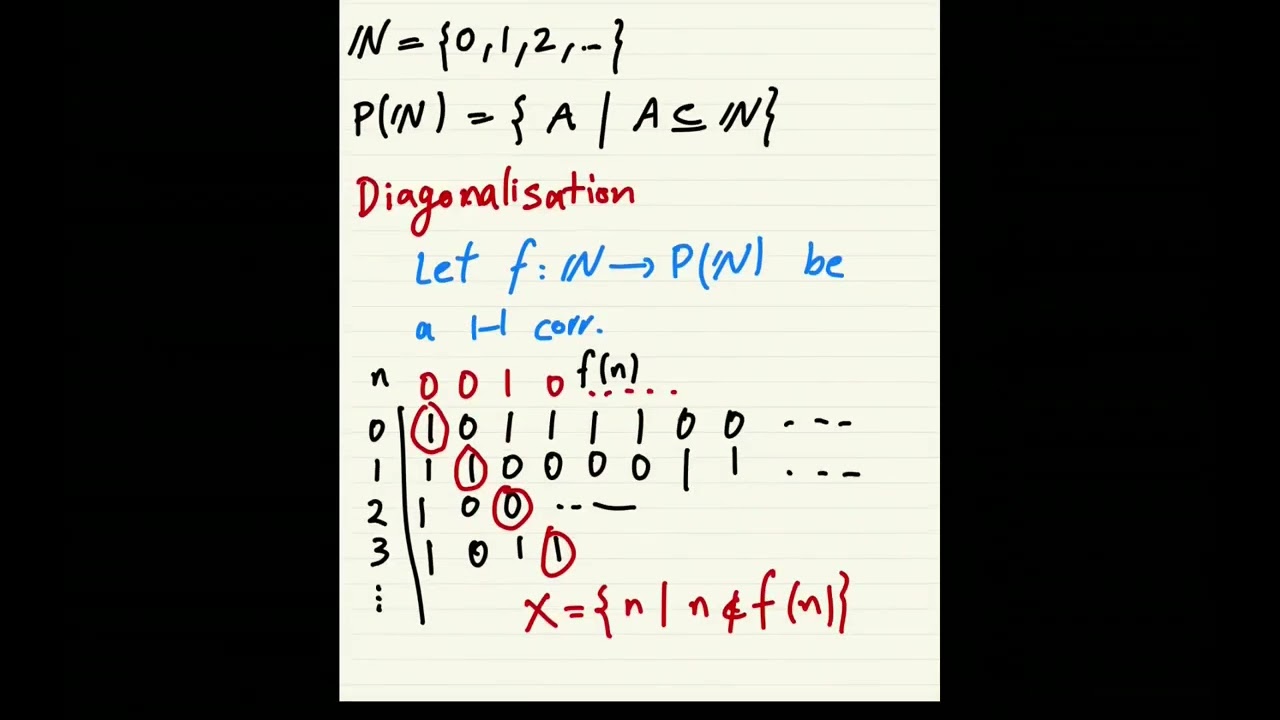 ℕ = {0, 1, 2, ...}
P(ℕ) = { A | A ⊆ ℕ}
Diagonalisation
Let f : ℕ → P(ℕ) be
a 1-1 corr.
n f(n)
0 0 1 0 . . . . .
0 1 0 1 1 1 1 0 0 - - -
1 1 1 0 0 0 0 1 1 . - -
2 1 0 0 .. —
3 1 0 1 1
⋮
X = { n | n ∉ f(n)}